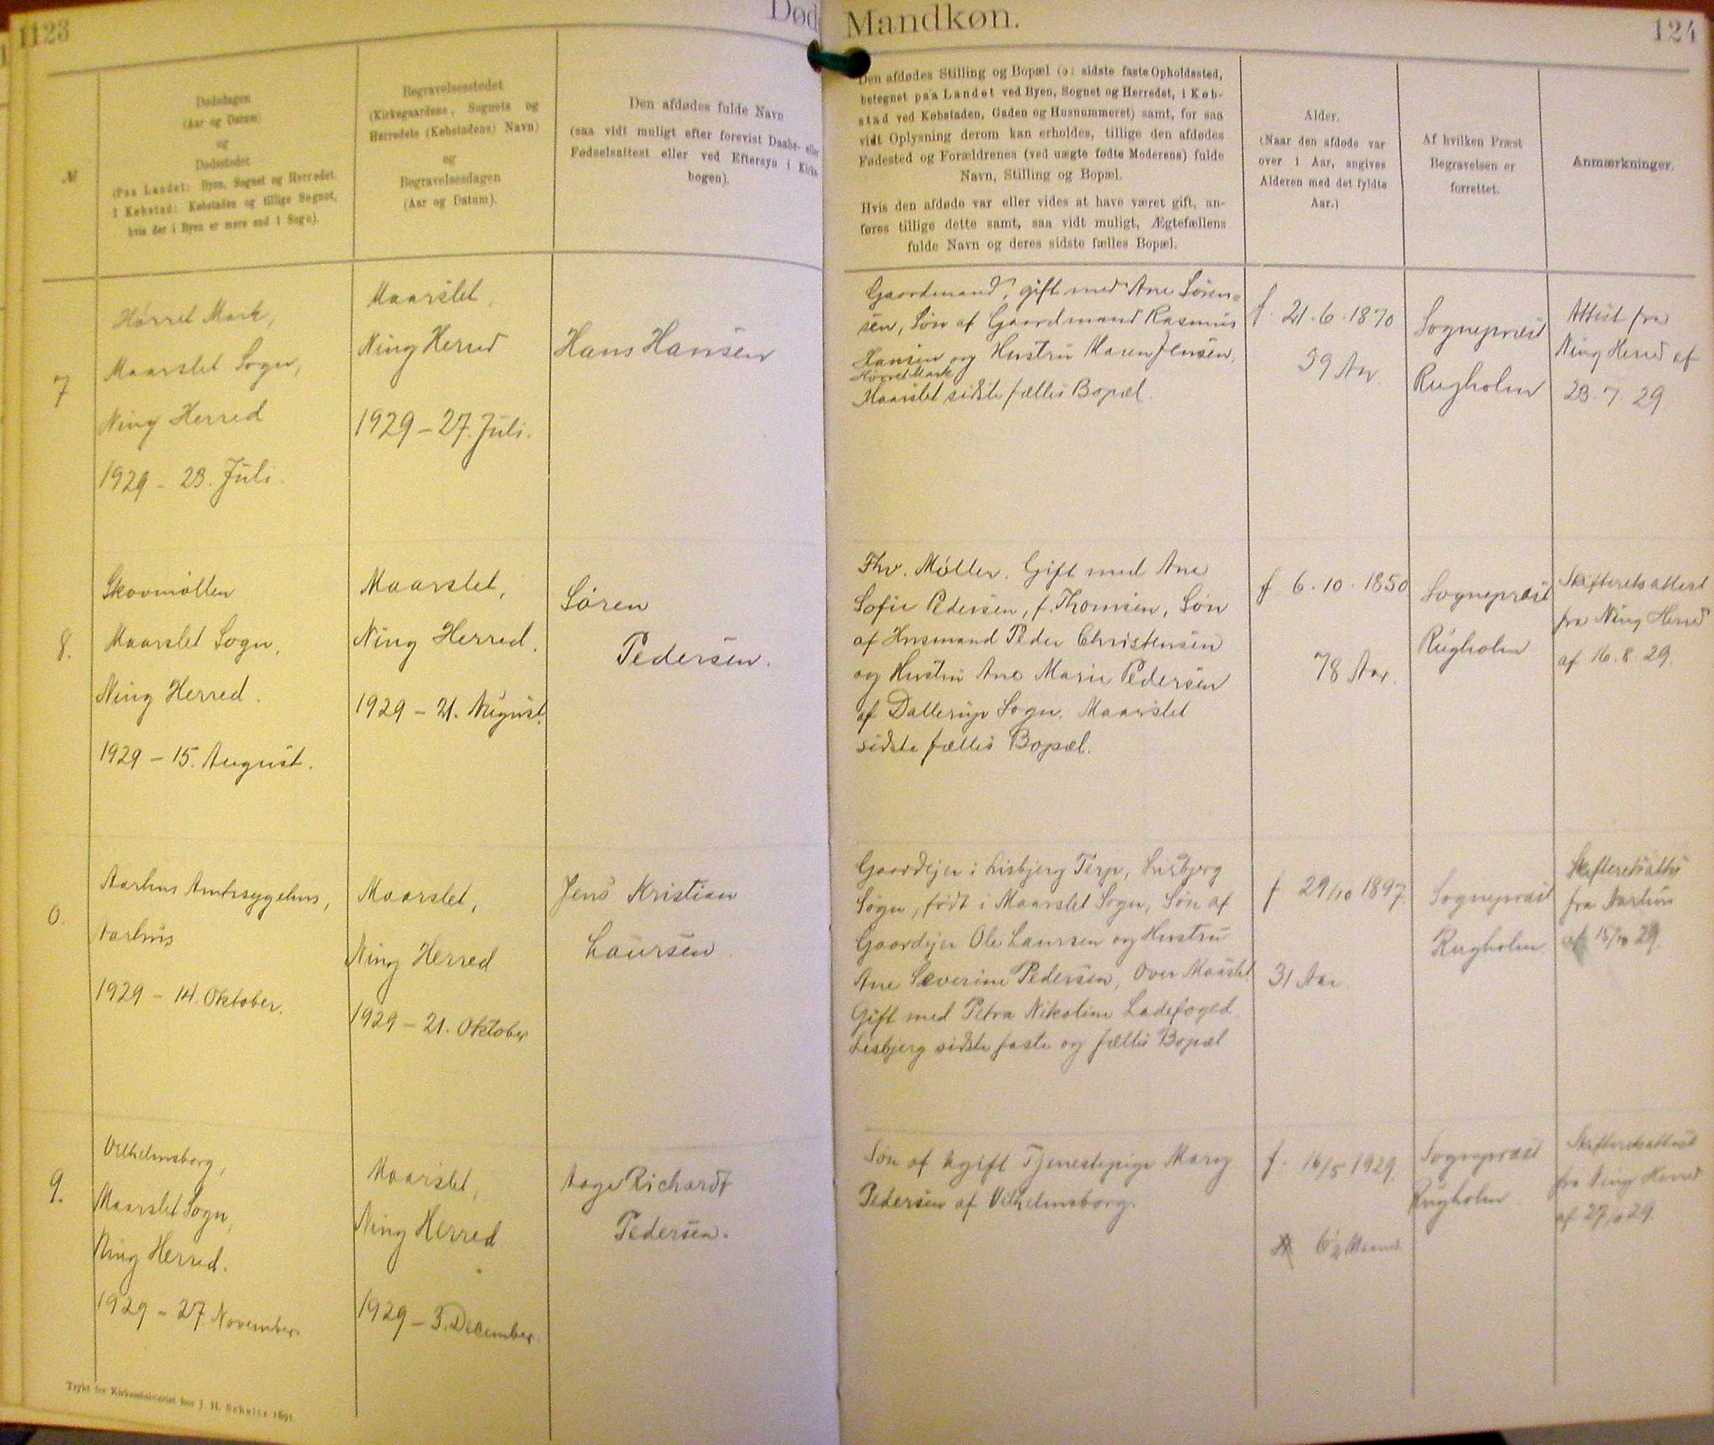 1123
Død
Mandkøn.
124
№
Dødsdagen
(Aar og Datum)
og
Dødsstedet
(Paa Landet: Byen, Sognet og Herredet,
i Købstad: Købstaden og tillige Sognet,
hvis der i Byen er mere end 1 Sogn).
Begravelsesstedet
(Kirkegaardens, Sognets og
Herredets (Købstadens) Navn)
og
Begravelsesdagen
(Aar og Datum).
Den afdødes fulde Navn
(saa vidt muligt efter forevist Daabs- eller
Fødselsattest eller ved Eftersyn i Kirke-
bogen).
Den afdødes Stilling og Bopæl (ɔ: sidste faste Opholdssted,
betegnet paa Landet ved Byen, Sognet og Herredet, i Køb-
stad ved Købstaden, Gaden og Husnummeret) samt, for saa
vidt Oplysning derom kan erholdes, tillige den afdødes
Fødested og Forældrenes (ved uægte fødte Moderens) fulde
Navn, Stilling og Bopæl.
Hvis den afdøde var eller vides at have været gift, an-
føres tillige dette samt, saa vidt muligt, Ægtefællens
fulde Navn og deres sidste fælles Bopæl.
Alder.
(Naar den afdøde var
over 1 Aar, angives
Alderen med det fyldte
Aar.)
Af hvilken Præst
Begravelsen er
forrettet.
Anmærkninger.
7
Hørret Mark,
Maarslet Sogn,
Ning Herred
1929 – 23. Juli.
Maarslet,
Ning Herred
1929 – 27. Juli.
Hans Hansen
Gaardmand, gift med Ane Søren=
sen, Søn af Gaardmand Rasmus
Hansen og Hustru Maren Jensen,
Hørret Mark
Maarslet sidste fælles Bopæl.
f. 21.6.1870
59 Aar.
Sognepræst
Rugholm
Attest fra
Ning Herred af
23.7.29
8.
Skovmøllen
Maarslet Sogn,
Ning Herred.
1929 – 15. August.
Maarslet,
Ning Herred.
1929 – 21. August.
Søren
Pedersen.
Fhv. Møller. Gift med Ane
Sofie Pedersen, f. Thomsen, Søn
af Husmand Peder Christensen
og Hustru Ane Marie Pedersen
af Dallerup Sogn. Maarslet
sidste fælles Bopæl.
f 6.10.1850
78 Aar.
Sognepræst
Rugholm
Skifteretsattest
fra Ning Herred
af 16.8.29.
0.
Aarhus Amtssygehus,
Aarhus
1929 – 14. Oktober.
Maarslet,
Ning Herred
1929 – 21. Oktober
Jens Kristian
Laursen.
Gaardejer i Lisbjerg Terp, Lisbjerg
Sogn, født i Maarslet Sogn, Søn af
Gaardejer Ole Laursen og Hustru
Ane Severine Pedersen, Over Maarslet.
Gift med Petra Nikoline Ladefoged.
Lisbjerg sidste faste og fælles Bopæl
f 29/10 1897.
31 Aar.
Sognepræst
Rugholm.
Skifteretsattest
fra Aarhus
af 15/10 29.
9.
Vilhelmsborg,
Maarslet Sogn,
Ning Herred.
1929 – 27. November.
Maarslet,
Ning Herred
1929 – 3. December.
Aage Richardt
Pedersen.
Søn af ugift Tjenestepige Mary
Pedersen af Vilhelmsborg.
f. 16/5 1929.
6½ Maaned.
Sognepræst
Rugholm.
Skifteretsattest
fra Ning Herred
af 27/11 29.
Trykt for Kirkeministeriet hos J. H. Schultz 1891